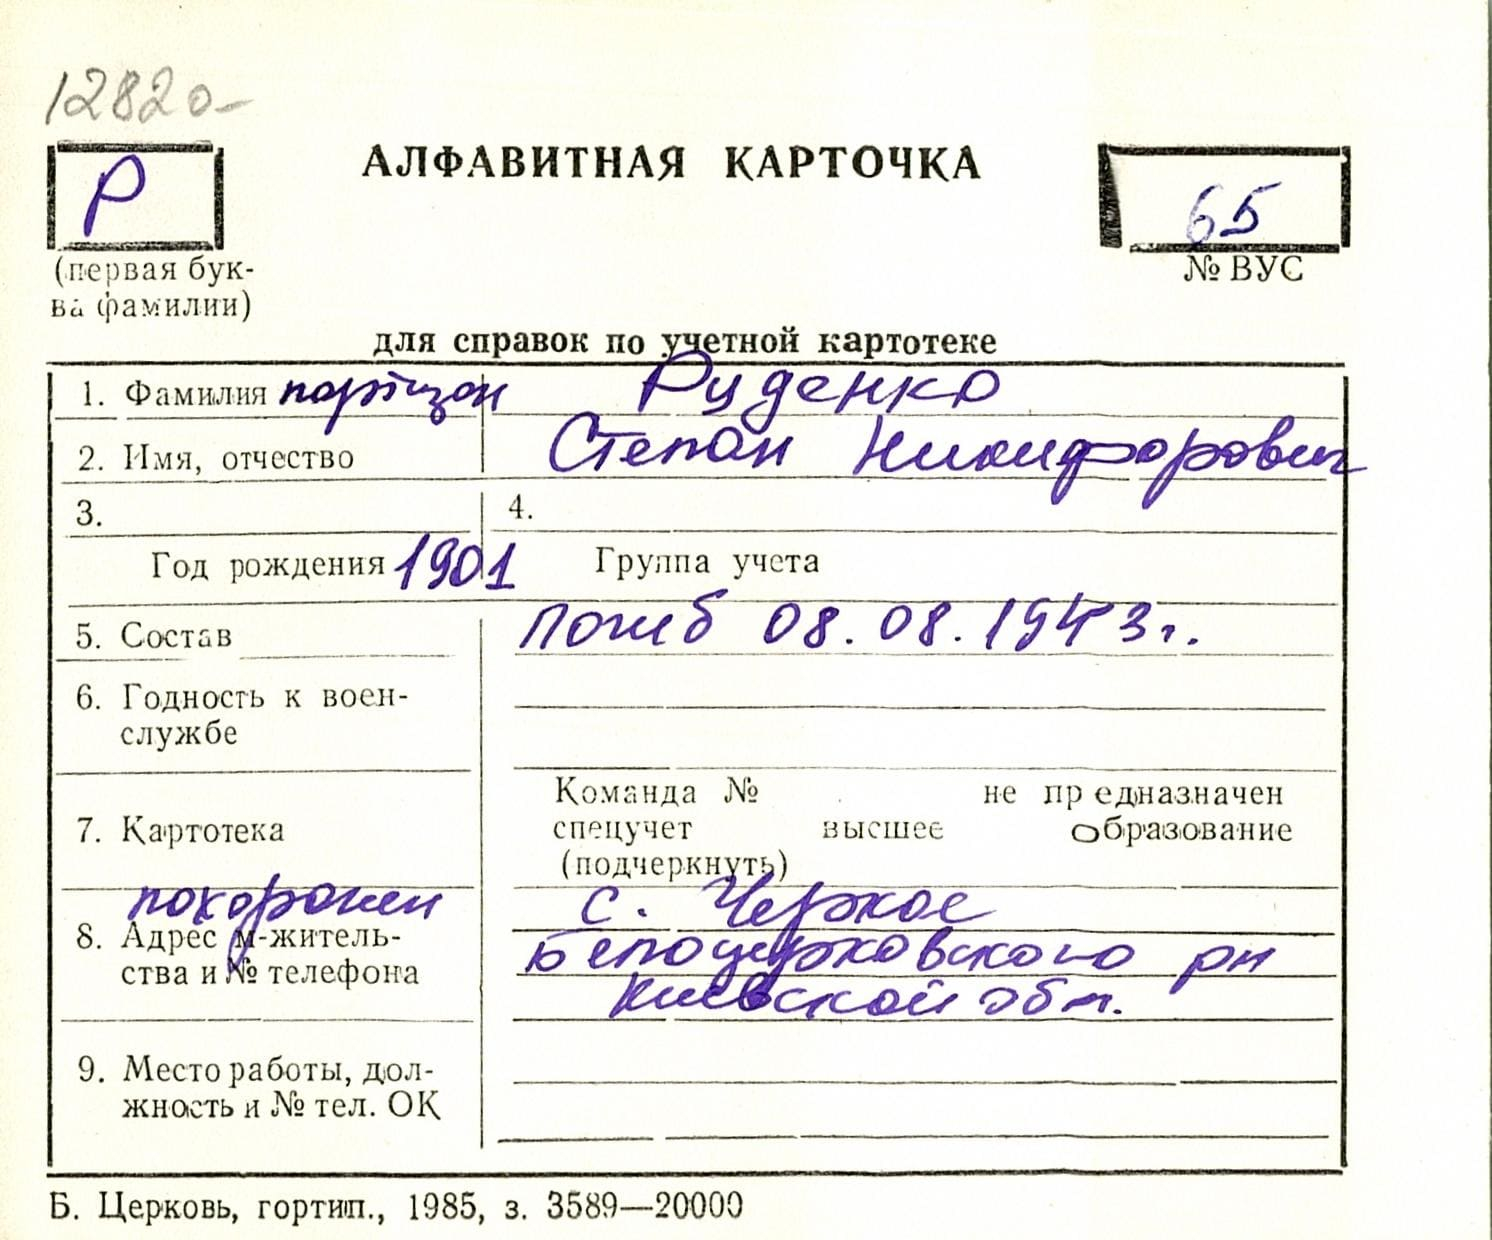 12820-
Р
АЛФАВИТНАЯ КАРТОЧКА
65
(первая бук-
ва фамилии)
№ ВУС
для справок по учетной картотеке
1. Фамилия партизан Руденко
2. Имя, отчество Степан Никифорович
3. 4.
Год рождения 1901 Группа учета
5. Состав погиб 08.08.1943 г.
6. Годность к воен-
службе
Команда № не предназначен
7. Картотека спецучет высшее образование
(подчеркнуть)
похоронен с. Черкас
8. Адрес м-житель- Белоцерковского рн
ства и № телефона Киевской обл.
9. Место работы, дол-
жность и № тел. ОК
Б. Церковь, гортип., 1985, з. 3589—20000